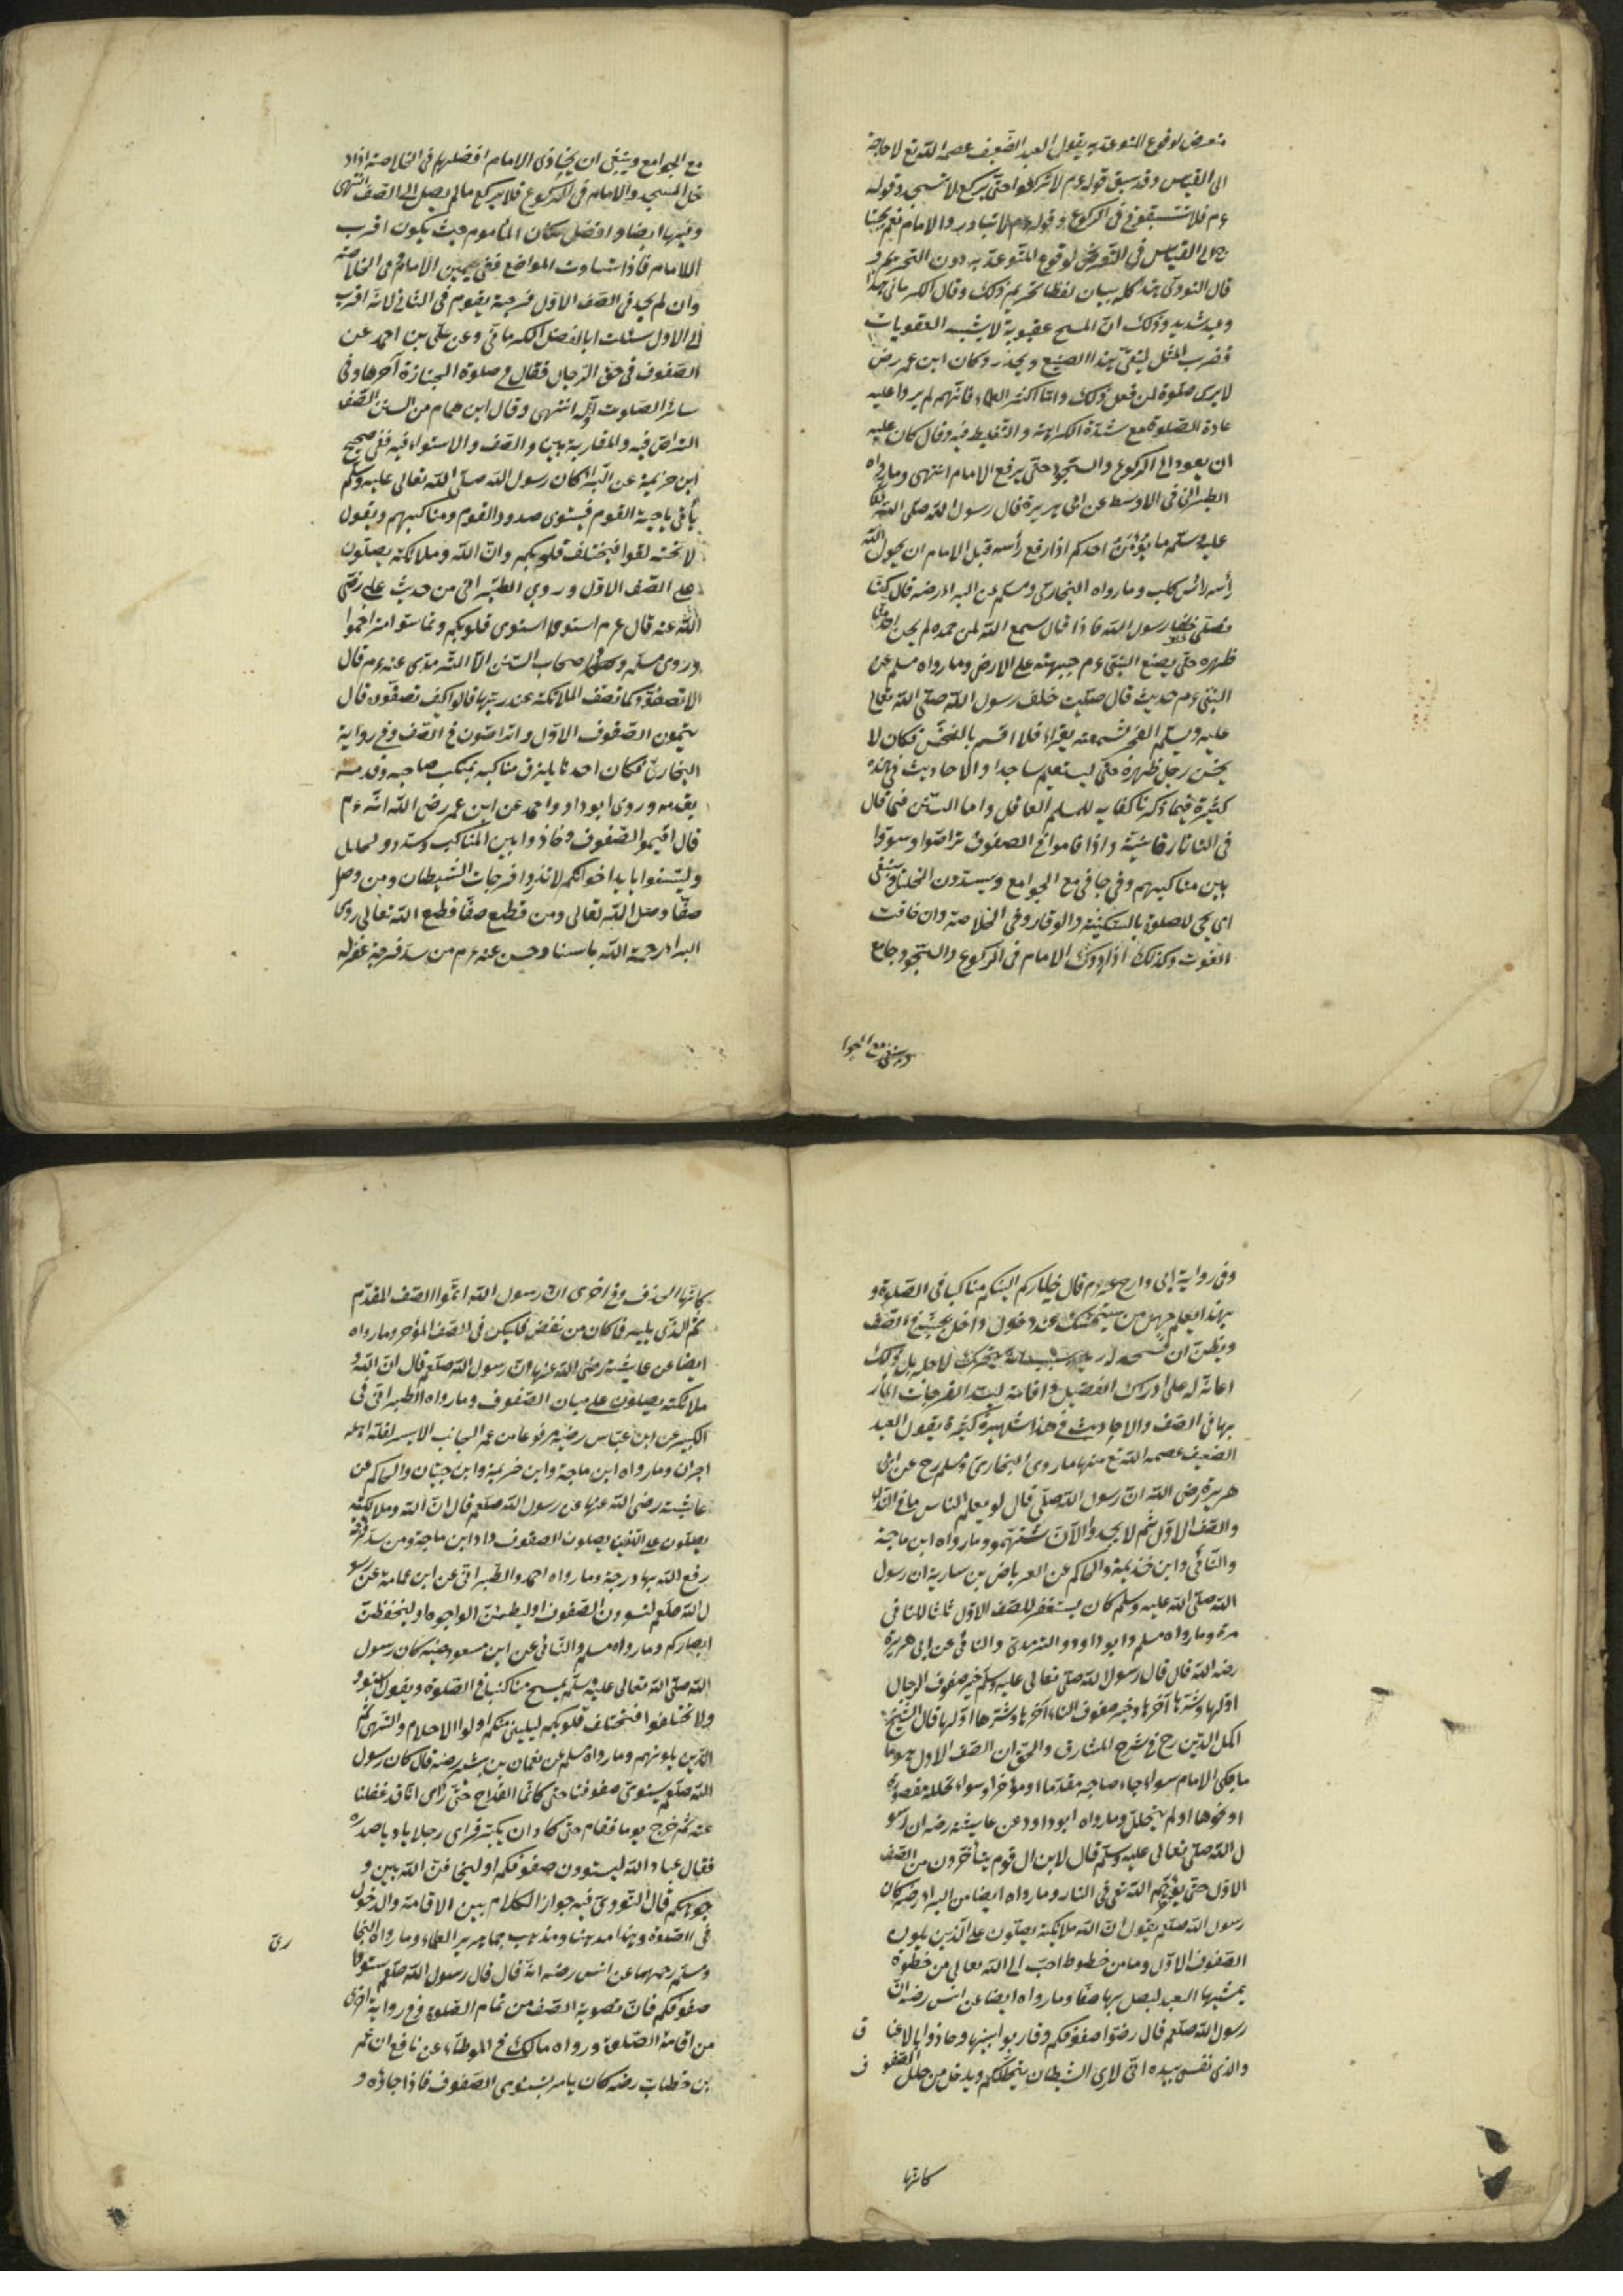 متعرض لوقوع المتوعد به يقول العبد الضعيف عصمه الله تع لا حاجة
الى القياس وقد سبق قوله ءم لا تركعوا حتى يركع لا تسجد وقوله
ءم فلا تسبقونى فى الركوع وقوله ءم لا تبادروا الامام نعم يحتا
ج الى القياس فى التعرض لوقوع المتوعد به دون التحريم و
قال النووى هذا كله بيان لغلظ تحريم ذلك وقال الكرمانى هذا
وعيد شديد وذلك ان المسخ عقوبة لا يشبه العقوبات
فضرب المثل ليتقى هذا الصنيع ويحذر وكان ابن عمر رض
لا يرى صلوة لمن فعل ذلك واما اكثر العلماء فانهم لم يروا عليه
عادة الصلوة مع شدة الكراهة والتغليظ فيه وقال كان عليه
ان يعود الى الركوع والسجود حتى يرفع الامام انتهى وما رواه
الطبرانى فى الاوسط عن ابى هريرة قال رسول الله صلى الله تعا
عليه وسلم ما يؤمن احدكم اذا رفع رأسه قبل الامام ان يحول الله
رأسه رأس كلب وما رواه البخارى ومسلم عن البراء رضه قال كنا
نصلى خلف رسول الله فاذا قال سمع الله لمن حمده لم يحن احد منا
ظهره حتى يضع النبى ءم جبهته على الارض وما رواه مسلم عن
النبى ءم حديث قال صليت خلف رسول الله صلى الله تعالى
عليه وسلم الفجر فسمعته يقراء فلا اقسم بالخنس فكان لا
يحنى رجل ظهره حتى ليستتم ساجدا والاحاديث فى هذا
كثيرة فيما ذكرنا كفاية للمسلم العاقل واما السنن فما قال
فى التاتارخانية واذا قاموا فى الصفوف تراصوا وسووا
بين مناكبهم وفى جافى مع الجوامع ويسدون الخلل وينبغى
اى يجئ للصلوة بالسكينة والوقار وفى الخلاصة وان خافت
الفوت وكذلك اذا ادرك الامام فى الركوع والسجود جامع
وينبغى مع الجوا
مع الجوامع وينبغى ان يحاذى الامام افضلهم فى الخلاصة اذا د
خل المسجد والامام فى الركوع فلا يركع مالم يصل الى الصف انتهى
وفيها ايضا وافضل مكان المأموم حيث يكون اقرب
الامام فاذا تساوت المواضع ففى يمين الامام وفى الخلاصة
وان لم يجد فى الصف الاول فرجة يقوم فى الثانى لانه اقرب
الى الاول سئلت ابا الفضل الكرمانى وعن على بن احمد عن
الصفوف فى حق الرجال فقال فى صلوة الجنازة آخرها وفى
سائر الصلوت اوله انتهى وقال ابن همام من السنن الصف
التراص فيه والمقاربة بين والصف والاستواء فيه ففى صحيح
ابن خزيمة عن البراء كان رسول الله صلى الله تعالى عليه وسلم
يأتى ناحية القوم فيسوى صدور القوم ومناكبهم ويقول
لا تختلفوا فيختلف قلوبكم وان الله وملائكته يصلون
على الصف الاول وروى الطبرانى من حديث على رضى
الله عنه قال ءم استووا استوى قلوبكم وتماسوا تراحموا
وروى مسلم و اصحاب السنن الا الترمذى عنه ءم قال
الا تصفون كما تصف الملائكة عند ربها قالوا كيف تصفون قال
يتمون الصفوف الاول وتراصون فى الصف وفى رواية
البخارى فكان احدنا يلزق مناكبه بمنكب صاحبه وقدمه
بقدمه وروى ابو داود واحمد عن ابن عمر رضى الله انه ءم
قال اقيموا الصفوف وحاذوا بين المناكب وسدوا الخلل
ولينوا بايد اخوانكم لا تذروا فرجات الشيطان ومن وصل
صفا وصل الله تعالى ومن قطع صفا قطع الله تعالى روى
البراء رحمة الله باسنا وحسن عنه ءم من سد فرجة غفر له
وفى رواية ابى داود ح ءم قال خياركم الينكم مناكبا فى الصلوة و
بهذا يعلم جهل من يستمسك عند دخول داخل بجنبه فى الصف
ويظن ان فسحه له يتحرك لاجله بل ذلك
اعانة له على ادراك الفضيل واقامة لسد الفرجات المأر
بها فى الصف والاحاديث فى هذا شهيرة كثيرة يقول العبد
الضعيف عصمه الله تع منها ما روى البخارى ومسلم رح عن ابى
هريرة رضى الله ان رسول الله صلى قال لو يعلم الناس ما فى النداء
والصف الاول ثم لا يجدوا الا ان ستهموا وما رواه ابن ماجة
والنسائى وابن خذيمة والحاكم عن العرباض بن سارية ان رسول
الله صلى الله عليه وسلم كان يستغفر للصف الاول ثلاثا للثانى
مرة وما رواه مسلم وابو داود والترمذى والنسائى عن ابى هريرة
رضه الله قال قال رسول الله صلى تعالى عليه وسلم خير صفوف الرجال
اولها وشرها آخرها وخير صفوف النساء آخرها وشرها اولها قال الشيخ
اكمل الدين رح فى شرح المشارق والحق ان الصف الاول هو ما
ما يلى الامام سواء جاء صاحبه مقدما او مؤخرا وسواء تخلله مقصورة
او نحوها او لم يتخلل وما رواه ابو داود عن عايشة رضه ان رسو
ل الله صلى تعالى عليه وسلم قال لا يزال قوم يتأخرون من الصف
الاول حتى يؤخرهم الله تعى فى النار وما رواه ايضا من البراء رضه كان
رسول الله صلعم يقول ان الله ملائكته يصلون على الذين يلون
الصفوف الاول وما من خطوة احب الى الله تعالى من خطوة
يمشيها العبد ليصل بها صفا وما رواه ايضا عن انس رضه ان
رسول الله صلعم قال رصوا صفوفكم وقاربوا بينها وحاذوا بالاعنا ق
والذى نفسى بيده انى لارى الشيطان يتخللكم ويدخل من خلل الصفو ف
كانها
كانها الحذف وفى اخرى ان رسول الله اتموا الصف المقدم
ثم الذى يليه فما كان من نقص فليكن فى الصف المؤخر وما رواه
ايضا عن عايشة رضى الله عنها ان رسول الله صلعم قال ان الله و
ملائكته يصلون على ميان الصفوف وما رواه الطبرانى فى
الكبير عن ابن عباس رضيه مرفوعا من عمر الجانب الايسر لقلة اهله
اجران وما رواه ابن ماجة وابن خزيمة وابن حبان والحاكم عن
عايشة رضى الله عنها عن رسول الله صلعم قال ان الله وملائكته
يصلون على الذين يصلون الصفوف زاد ابن ماجة ومن سد فرجة
رفع الله بها درجة وما رواه احمد والطبرانى عن ابن عمامة عن رسو
ل الله صلعم لتسوون الصفوف او ليطمئن الواجوه او ليخفظن
ابصاركم وما رواه مسلم والنسائى عن ابن مسعود عنه كان رسول
الله صلى الله تعالى عليه وسلم يمسح مناكبنا فى الصلوة ويقول استوو
ولا تختلفوا فيختلف قلوبكم ليلينى منكم اولوا الاحلام والنهى ثم
الذين يلونهم وما رواه مسلم عن نعمان بن بشير رضه قال كان رسول
الله صلعم يسوى صفوفنا حتى كانما القداح حتى رأى انا قد غفلنا
عنه ثم خرج يوما فقام حتى كاد ان يكبر فراى رجلا باديا صدره
فقال عباد الله لتسوون صفوفكم او ليخالفن الله بين و
جوهكم قال النووى فيه جواز الكلام بين الاقامة والدخول
فى الصلوة وهذا مذهبنا ومذهب جماهير العلماء وما رواه البخا رى
ومسلم رحمهما عن انس رضه انه قال قال رسول الله صلعم سووا
صفوفكم فان تسوية الصف من تمام الصلوة وفى رواية اخرى
من اقامة الصلوة ورواه مالك فى الموطاء عن نافع ان عمر
بن خطاب رضه كان يامر بتسوى الصفوف فاذا جاؤه و